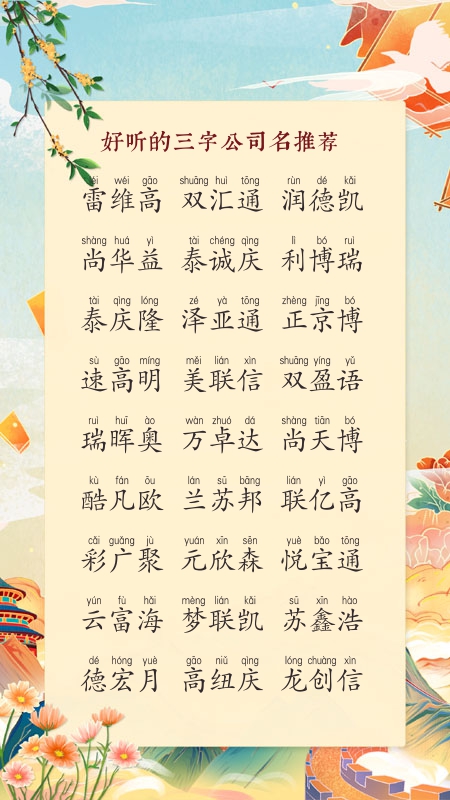 好听的三字公司名推荐
léi wéi gāo shuāng huì tōng rùn dé kǎi
雷维高 双汇通 润德凯
shàng huá yì tài chéng qìng lì bó ruì
尚华益 泰诚庆 利博瑞
tài qìng lóng zé yà tōng zhèng jīng bó
泰庆隆 泽亚通 正京博
sù gāo míng měi lián xìn shuāng yíng yǔ
速高明 美联信 双盈语
ruì huī ào wàn zhuó dá shàng tiān bó
瑞晖奥 万卓达 尚天博
kù fán ōu lán sū bāng lián yì gāo
酷凡欧 兰苏邦 联亿高
cǎi guǎng jù yuán xīn sēn yuè bǎo tōng
彩广聚 元欣森 悦宝通
yún fù hǎi mèng lián kǎi sū xīn hào
云富海 梦联凯 苏鑫浩
dé hóng yuè gāo niǔ qìng lóng chuàng xìn
德宏月 高纽庆 龙创信